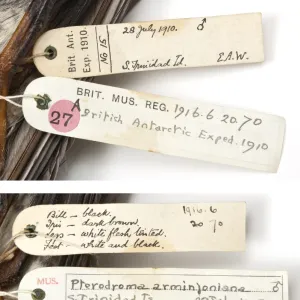 28 July 1910. ♂
Brit. Ant.
Exp. 1910.
No 15
S. Trinidad Id. E.A.W.
BRIT. MUS. REG. 1916.6 20.70
A
27
British Antarctic Exped. 1910
Bill - black.
Iris - dark brown.
Legs - white flesh tinted.
Feet - white and black.
1916.6
20 70
MUS. Pterodroma arminjoniana
S. Trinidad Is.